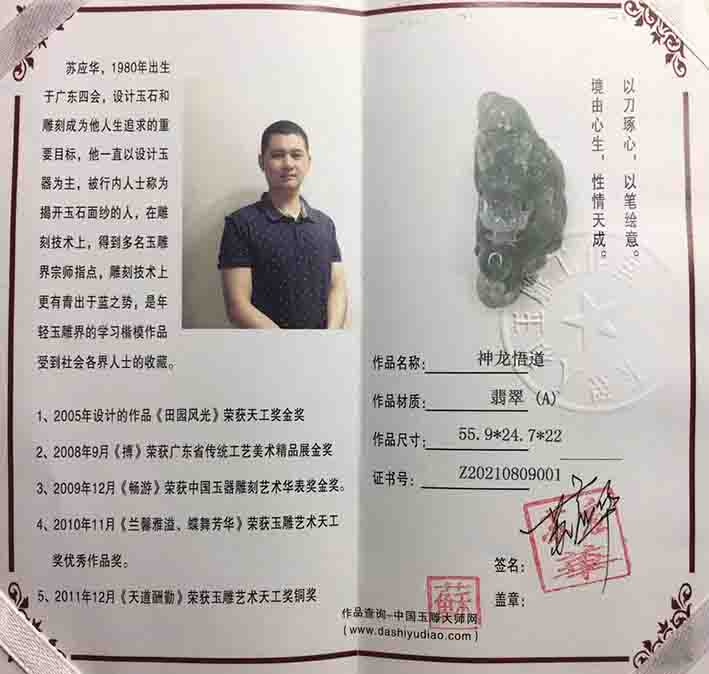 苏应华，1980年出生
于广东四会，设计玉石和
雕刻成为他人生追求的重
要目标，他一直以设计玉
器为主，被行内人士称为
揭开玉石面纱的人，在雕
刻技术上，得到多名玉雕
界宗师指点，雕刻技术上
更有青出于蓝之势，是年
轻玉雕界的学习楷模作品
受到社会各界人士的收藏。
1、2005年设计的作品《田园风光》荣获天工奖金奖
2、2008年9月《博》荣获广东省传统工艺美术精品展金奖
3、2009年12月《畅游》荣获中国玉器雕刻艺术华表奖金奖。
4、2010年11月《兰馨雅溢、蝶舞芳华》荣获玉雕艺术天工
奖优秀作品奖。
5、2011年12月《天道酬勤》荣获玉雕艺术天工奖铜奖
以刀琢心，以笔绘意。
境由心生，性情天成。
作品名称：神龙悟道
作品材质：翡翠（A）
作品尺寸：55.9*24.7*22
证书号：Z20210809001
签名：苏应华
盖章：
作品查询-中国玉雕大师网
（www.dashiyudiao.com）